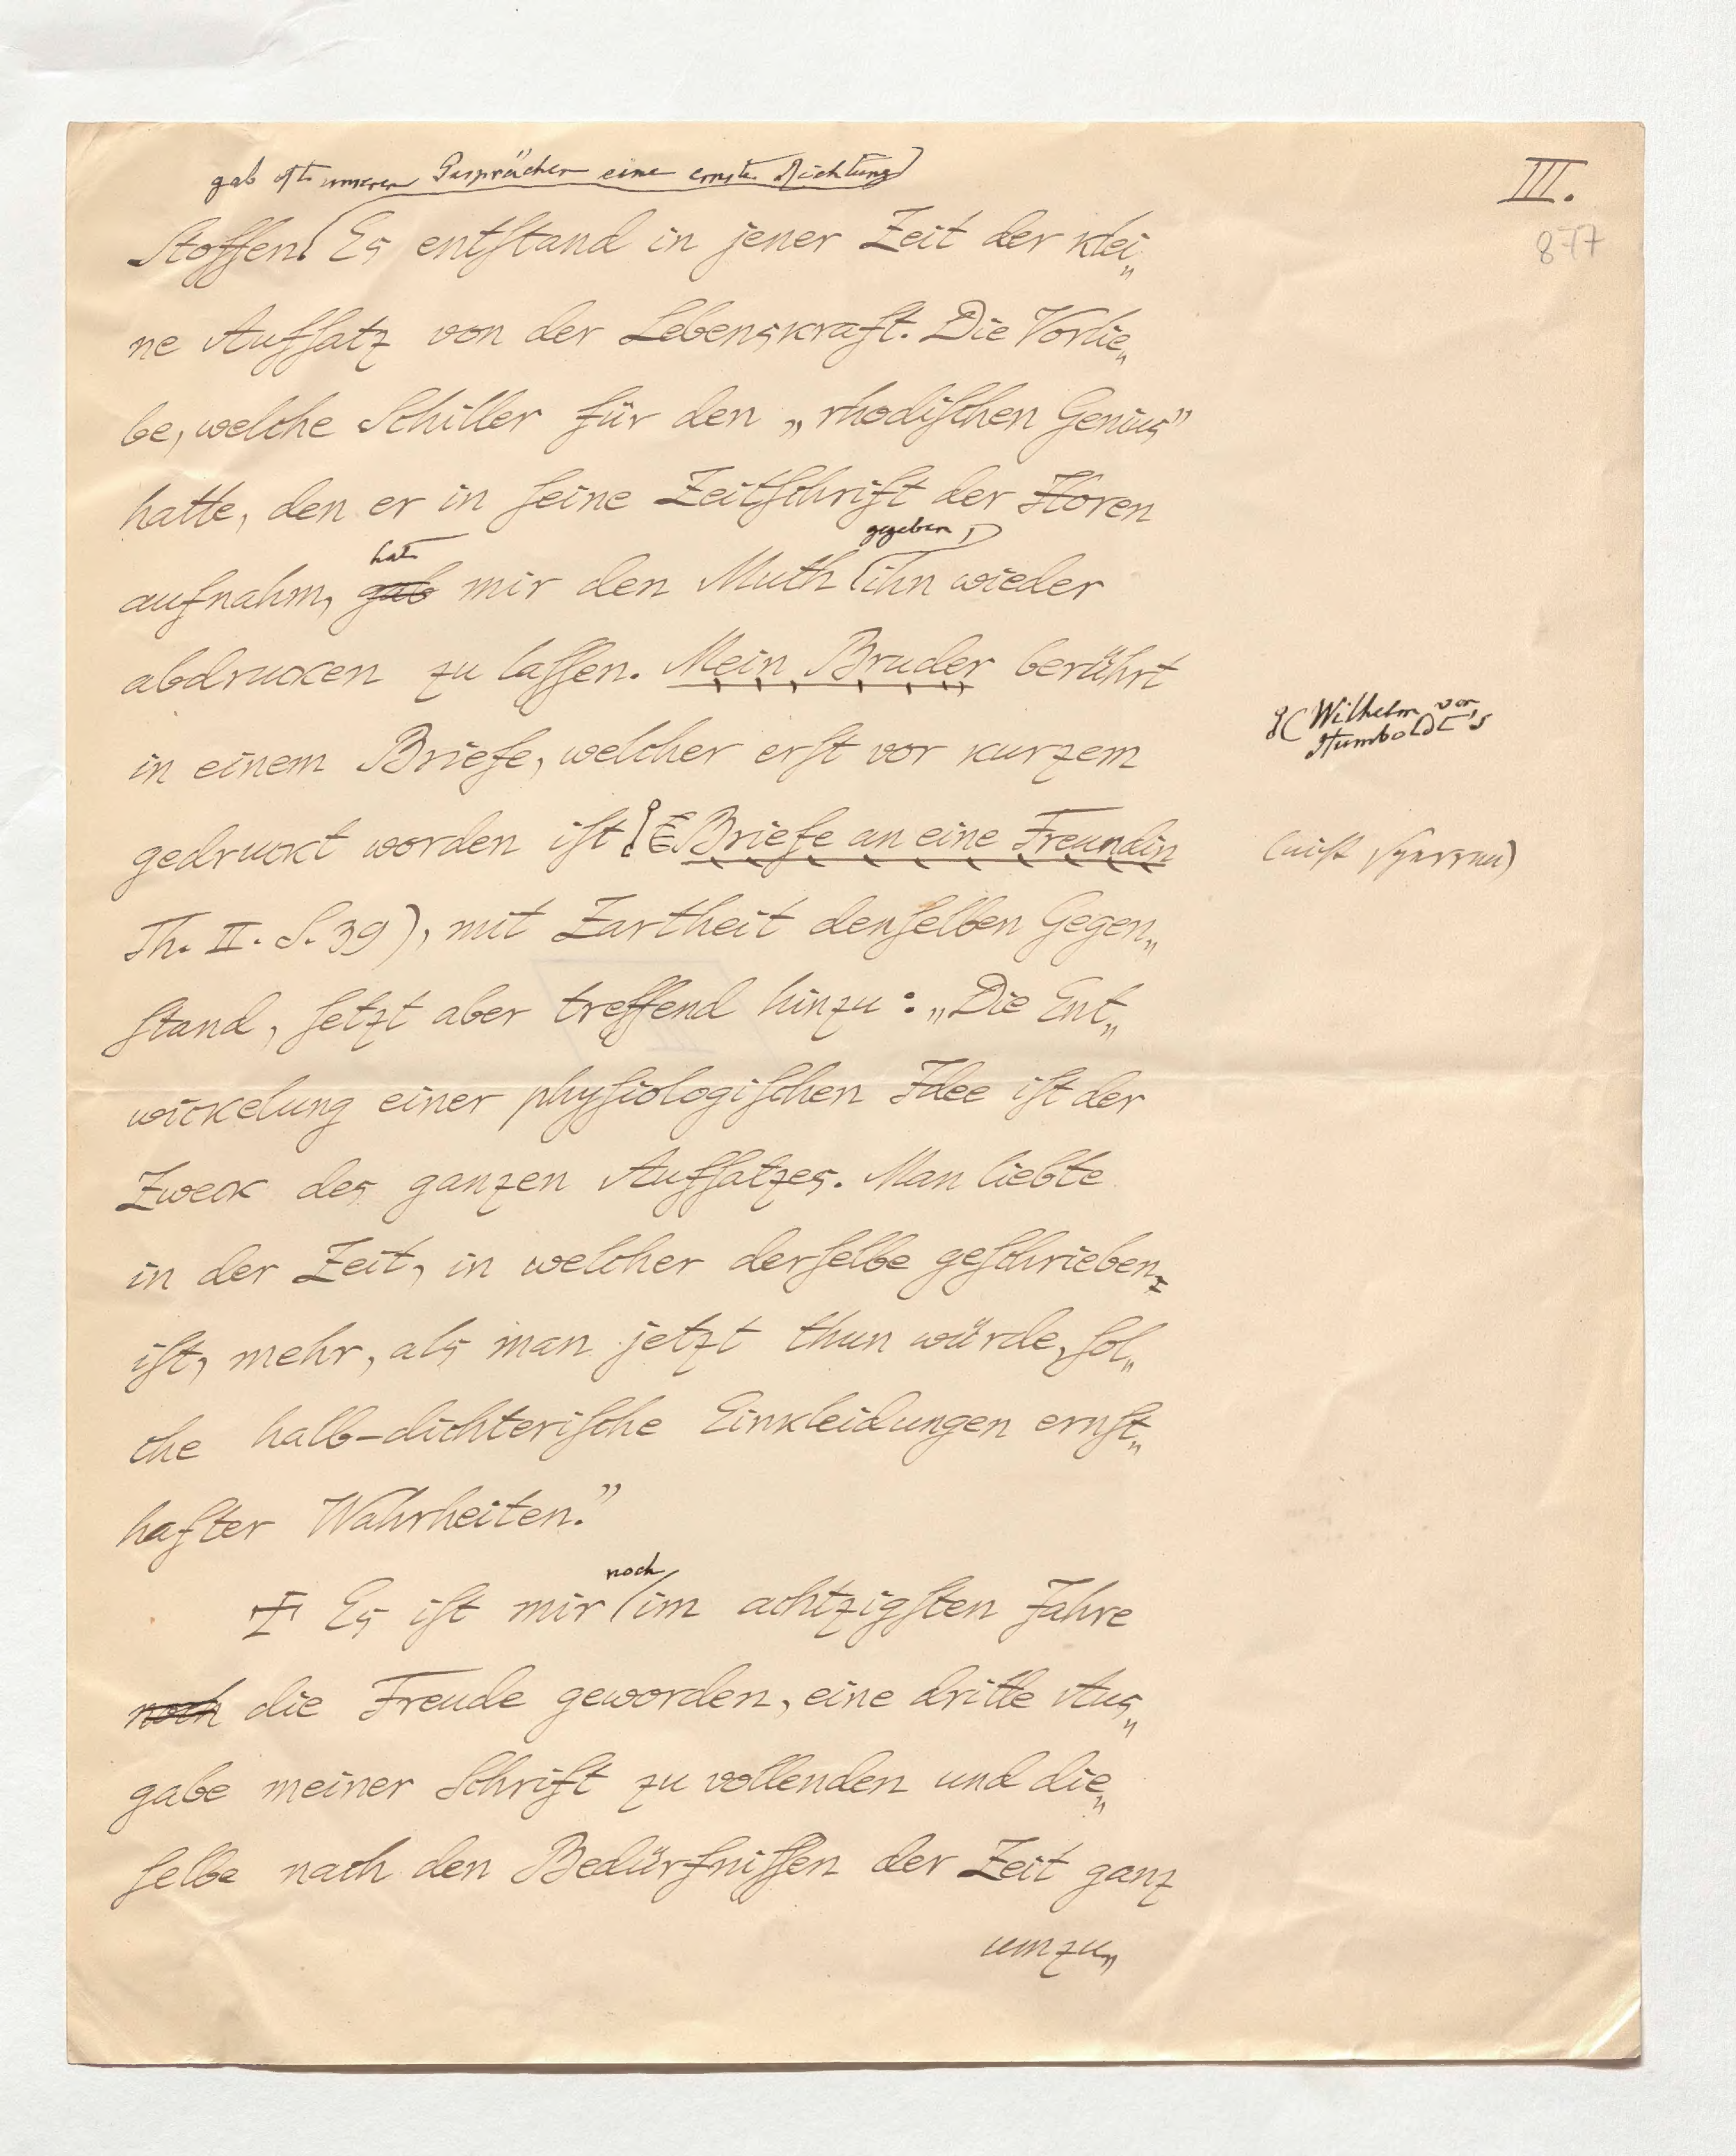 III.
877
gab oft unseren Gesprächen eine ernste Richtung
Stoffen. Es entſtand in jener Zeit der klei„
ne Aufſatz von der Lebenskraft. Die Vorlie„
be, welche Schiller für den „rhodiſchen Genius”
hatte, den er in ſeine Zeitſchrift der Horen
hat gegeben,
aufnahm, gab mir den Muth ihn wieder
abdrucken zu laſſen. Mein Bruder berührt
(Wilhelm von
Humboldt's
in einem Briefe, welcher erſt vor kurzem
gedruckt worden iſt (Briefe an eine Freundin
(nicht ſperren)
Th. II. S. 39), mit Zartheit denſelben Gegen„
ſtand, ſetzt aber treffend hinzu: „Die Ent„
wickelung einer phyſiologiſchen Idee iſt der
Zweck des ganzen Aufſatzes. Man liebte
in der Zeit, in welcher derſelbe geſchrieben
iſt, mehr, als man jetzt thun würde, ſol„
che halb-dichteriſche Einkleidungen ernſt„
hafter Wahrheiten.”
noch
Es iſt mir im achtzigſten Jahre
noch die Freude geworden, eine dritte Aus„
gabe meiner Schrift zu vollenden und die„
ſelbe nach den Bedürfniſſen der Zeit ganz
umzu„